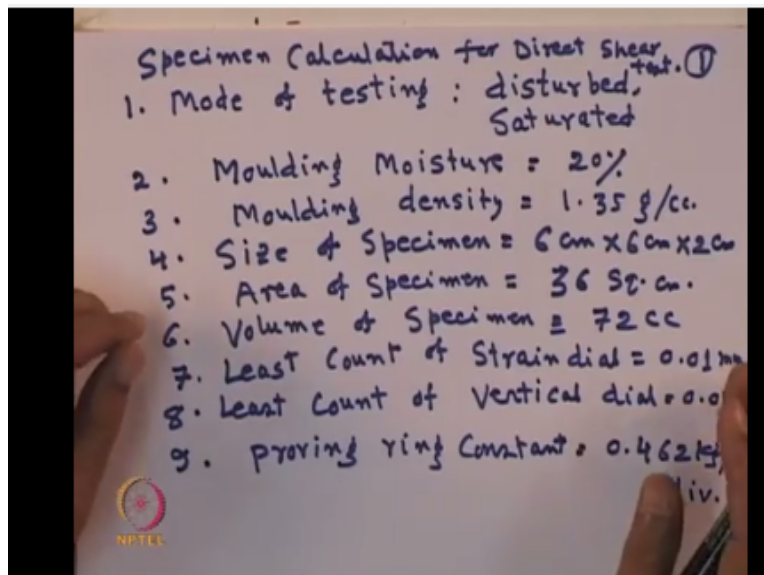 Specimen Calculation for Direct Shear test. ①
1. Mode of testing : disturbed,
Saturated
2. Moulding Moisture = 20%
3. Moulding density = 1.35 g/cc.
4. Size of Specimen = 6 cm x 6 cm x 2 cm
5. Area of Specimen = 36 Sq. cm.
6. Volume of Specimen = 72 cc
7. Least Count of Strain dial = 0.01 mm
8. Least Count of Vertical dial = 0.0
9. proving ring Constant = 0.462 kg/
div.
NPTEL